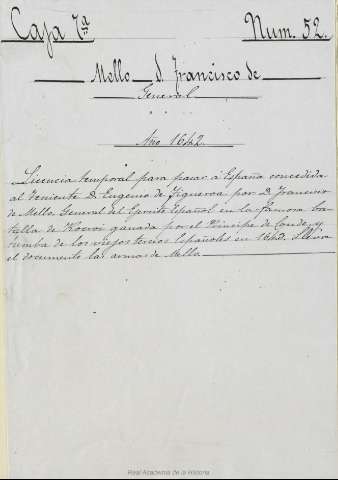 Caja 7ª Num. 52.
Mello D. Francisco de
General
Año 1642
Licencia temporal para pasar á España concedida
al Teniente D. Eugenio de Figueroa por D. Francisco
de Mello General del Ejército Español en la famosa ba-
talla de Rocroi ganada por el Príncipe de Conde, y
tumba de los viejos tercios Españoles en 1643. Lleva
el documento las armas de Mello.
Real Academia de la Historia